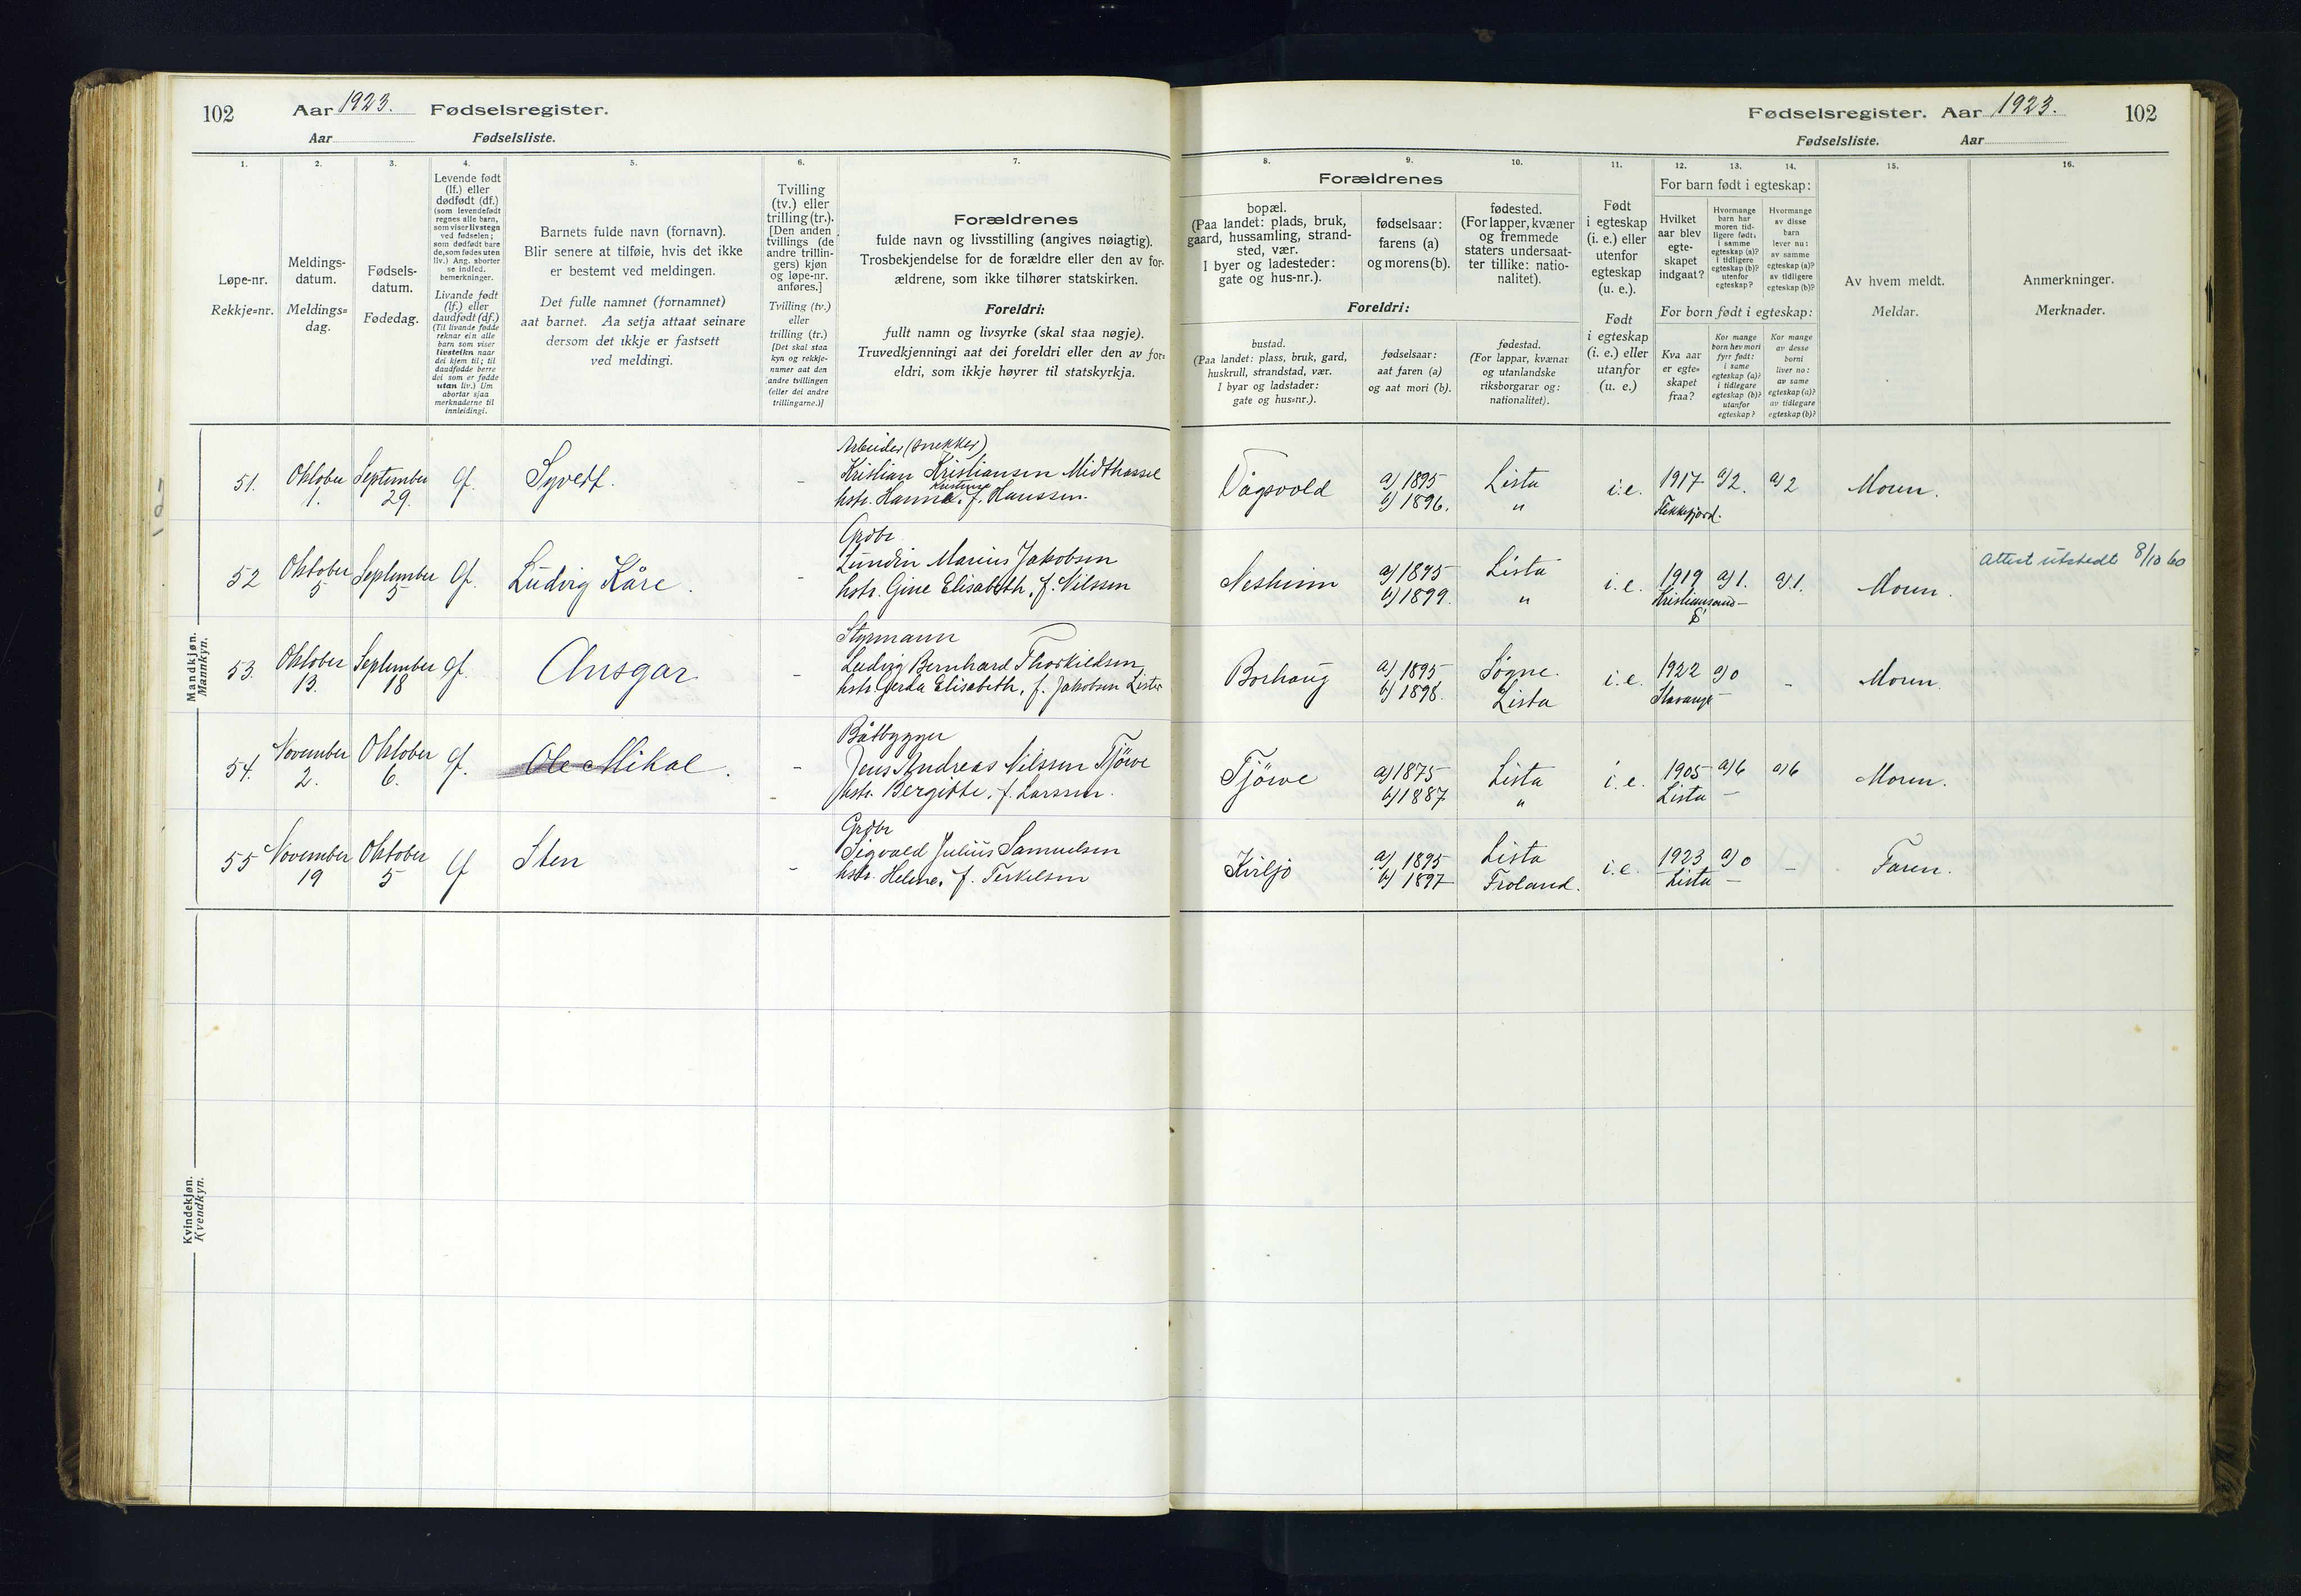 102 Aar 1923. Fødselsregister.
Aar Fødselsliste.
1. 2. 3. 4. 5. 6. 7.
Løpe-nr.
Rekkje=nr.
Meldings-
datum.
Meldings=
dag.
Fødsels-
datum.
Fødedag.
Levende født
(lf.) eller
dødfødt (df.)
(som levendefødt
regnes alle barn,
som viser livstegn
ved fødselen;
som dødfødt bare
de, som fødes uten
liv.) Ang. aborter
se indled.
bemerkninger.
Livande født
(lf.) eller
daudfødt (df.)
(Til livande fødde
reknar ein alle
barn som viser
livsteikn naar
dei kjem til; til
daudfødde berre
dei som er fødde
utan liv.) Um
abortar sjaa
merknaderne til
innleidingi.
Barnets fulde navn (fornavn).
Blir senere at tilføie, hvis det ikke
er bestemt ved meldingen.
Det fulle namnet (fornamnet)
aat barnet. Aa setja attaat seinare
dersom det ikkje er fastsett
ved meldingi.
Tvilling
(tv.) eller
trilling (tr.).
[Den anden
tvillings (de
andre trillin-
gers) kjøn
og løpe-nr.
anføres.]
Tvilling (tv.)
eller
trilling (tr.)
[Det skal staa
kyn og rekkje-
numer aat den
andre tvillingen
(eller dei andre
trillingarne.)]
Forældrenes
fulde navn og livsstilling (angives nøiagtig).
Trosbekjendelse for de forældre eller den av for-
ældrene, som ikke tilhører statskirken.
Foreldri:
fullt namn og livsyrke (skal staa nøgje).
Truvedkjenningi aat dei foreldri eller den av for=
eldri, som ikkje høyrer til statskyrkja.
Mandkjøn.
Mannkyn.
51. Oktober 1. September 29. lf. Syvert. -
Arbeider (snekker)
Kristian Kristiansen Midthassel
Kristine
hstr. Hanna, f. Hanssen.
52 Oktober 5 September 5 lf. Ludvig Kåre. -
Grdbr
Lundin Marius Jakobsen
hstr. Gine Elisabeth, f. Nilssen
53. Oktober 13. September 18 lf. Ansgar -
Styrmann
Ludvig Bernhard Thorkildsen,
hstr. Gerda Elisabeth, f. Jakobsen Lista
54. November 2. Oktober 6. lf. Ole Mikal. -
Båtbygger
Jens Andreas Nilssen Tjörve
hstr. Bergitte, f. Larssen.
55 November 19 Oktober 5 lf Sten -
Grdbr
Sigvald Julius Samuelsen
hstr. Helene, f. Terkelsen
Kvindekjøn.
Kvendkyn.
Fødselsregister. Aar 1923. 102
Fødselsliste. Aar
8. 9. 10. 11. 12. 13. 14. 15. 16.
Forældrenes
bopæl.
(Paa landet: plads, bruk,
gaard, hussamling, strand-
sted, vær.
I byer og ladesteder:
gate og hus-nr.).
fødselsaar:
farens (a)
og morens (b).
fødested.
(For lapper, kvæner
og fremmede
staters undersaat-
ter tillike: natio-
nalitet).
Foreldri:
bustad.
(Paa landet: plass, bruk, gard,
huskrull, strandstad, vær.
I byar og ladstader:
gate og hus=nr.).
fødselsaar:
aat faren (a)
og aat mori (b).
fødestad.
(For lappar, kvænar
og utanlandske
riksborgarar og:
nationalitet).
Født
i egteskap
(i. e.) eller
utenfor
egteskap
(u. e.).
Født
i egteskap
(i. e.) eller
utanfor
(u. e.)
For barn født i egteskap:
Hvilket
aar blev
egte-
skapet
indgaat?
Hvormange
barn har
moren tid-
ligere født:
i samme
egteskap (a)?
i tidligere
egteskap (b)?
utenfor
egteskap?
Hvormange
av disse
barn
lever nu:
av samme
egteskap (a)?
av tidligere
egteskap (b)?
For born født i egteskap:
Kva aar
er egte=
skapet
fraa?
Kor mange
born hev mori
fyrr født:
i same
egteskap (a)?
i tidlegare
egteskap (b)?
utanfor
egteskap?
Kor mange
av desse
borni
liver no:
av same
egteskap (a)?
av tidlegare
egteskap (b)?
Av hvem meldt.
Meldar.
Anmerkninger.
Merknader.
Vågsvold a) 1895 Lista i.e. 1917 a/2. a) 2 Moren.
b) 1896. " Flekkefjord.
Nesheim a) 1895 Lista i.e. 1919 a) 1. a) 1. Moren. Attest utstedt 8/10 60
b) 1899. " Kristiansand
S
Borhaug a) 1895 Søgne. i.e. 1922 a) 0 - Moren.
b) 1898. Lista Stavanger
Tjörve a) 1875 Lista i.e. 1905 a) 6 a) 6 Moren.
b) 1887 " Lista -
Kviljo a) 1895 Lista i.e. 1923 a) 0 - Faren.
b) 1897 Froland. Lista -